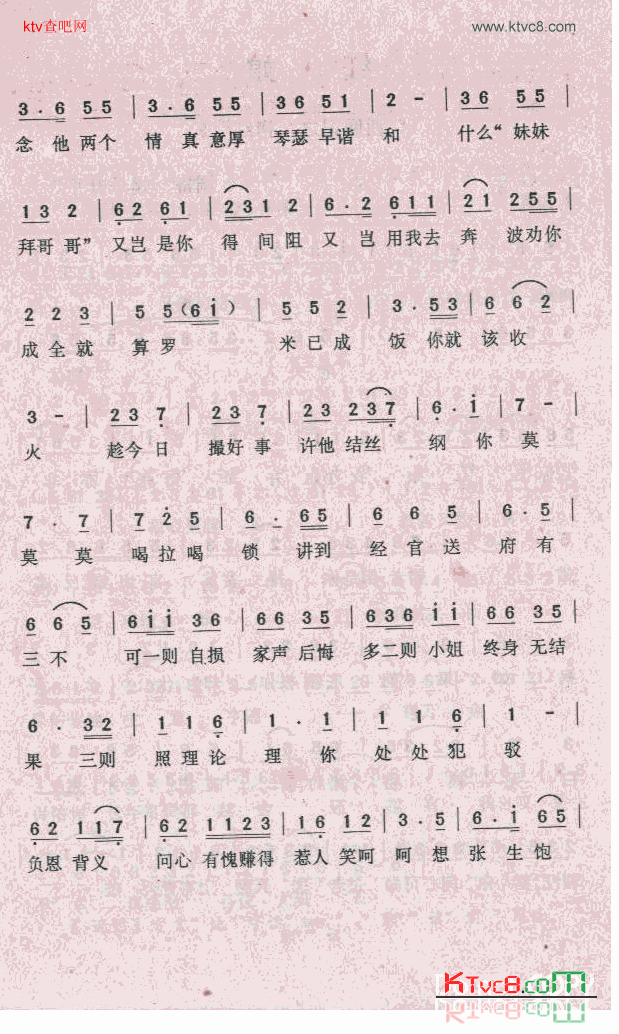 ktv查吧网 www.ktvc8.com
3·6 55 | 3·6 55 | 36 51 | 2 - | 36 55 |
念他两个 情真意厚 琴瑟早谐 和 什么“妹妹
1 3 2 | 62 61 | 231 2 | 6·2 | 611 | 21 255 |
拜哥哥” 又岂是你 得间阻 又岂用我去 奔 波劝你
2 2 3 | 5 5(6i) | 5 5 2 | 3·53 | 6 6 2 |
成全就 算罗 米已成 饭你就 该收
3 - | 23 7 | 23 7 | 23 237 | 6·i | 7 - |
火 趁今日 撮好事 许他结丝 纲你莫
7·7 | 7 2 5 | 6·65 | 6 6 5 | 6·5 |
莫莫 喝拉喝 锁讲到 经官送 府有
6 6 5 | 6ii 36 | 66 35 | 636 ii | 66 35 |
三不 可一则自损 家声后悔 多二则小姐 终身无结
6·32 | 1 1 6 | 1·1 | 1 1 6 | 1 - |
果三则 照理论 理你 处处犯 驳
62 117 | 62 1123 | 16 12 | 3·5 | 6·i 65 |
负恩背义 问心有愧赚得 惹人笑呵 呵想 张生饱
KTvc8.com